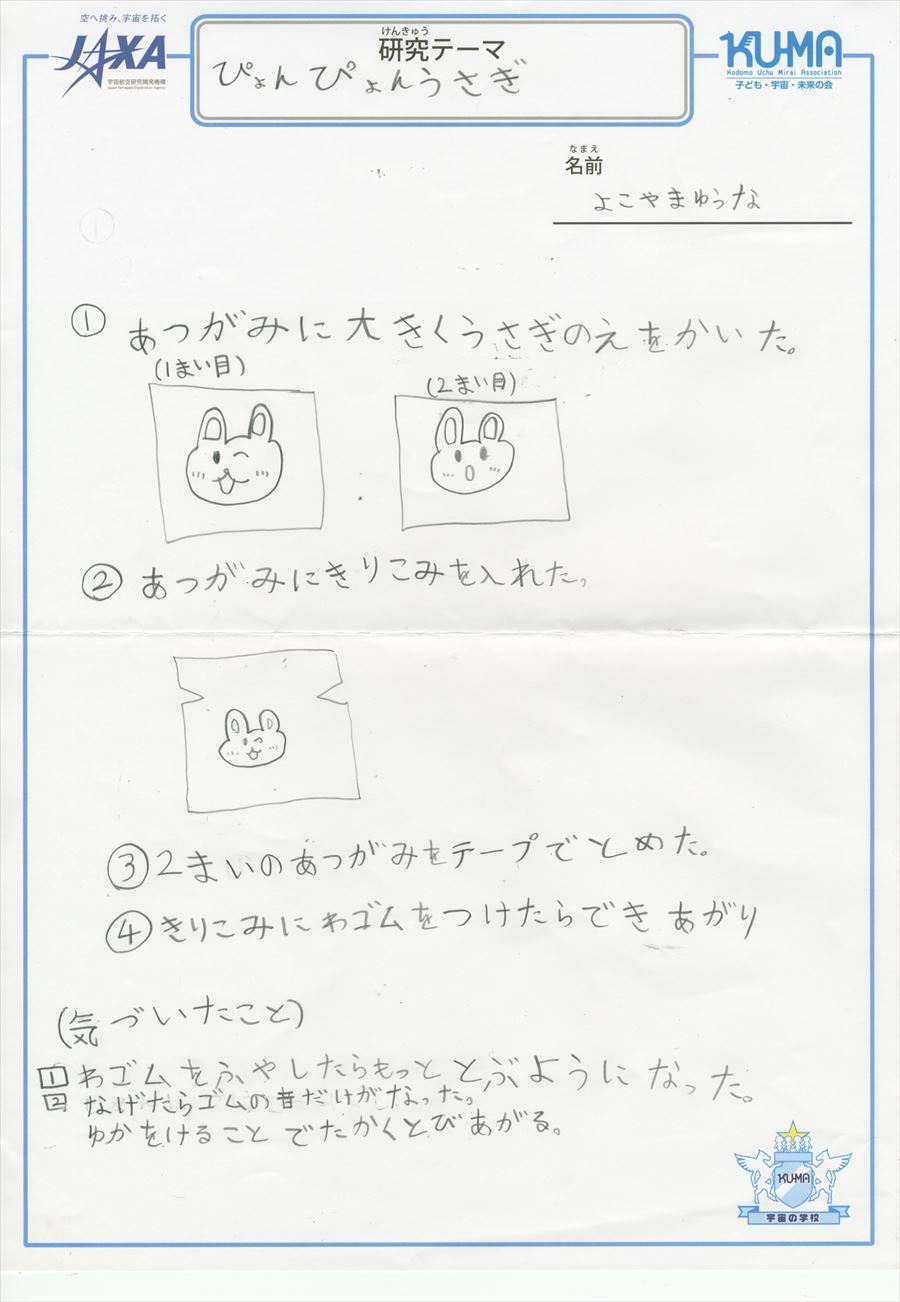 空へ挑み、宇宙を拓く
JAXA
宇宙航空研究開発機構
Japan Aerospace Exploration Agency
けんきゅう
研究テーマ
ぴょんぴょんうさぎ
KU-MA
Kodomo Uchu Mirai Association
子ども・宇宙・未来の会
なまえ
名前
よこやまゆうな
① あつがみに大きくうさぎのえをかいた。
(1まい目)
(2まい目)
② あつがみにきりこみを入れた。
③2まいのあつがみをテープでとめた。
④きりこみにわゴムをつけたらできあがり
(気づいたこと)
1 わゴムをふやしたらもっととぶようになった。
2 なげたらゴムの音だけがなった。
ゆかをけることでたかくとびあがる。
KU-MA
宇宙の学校